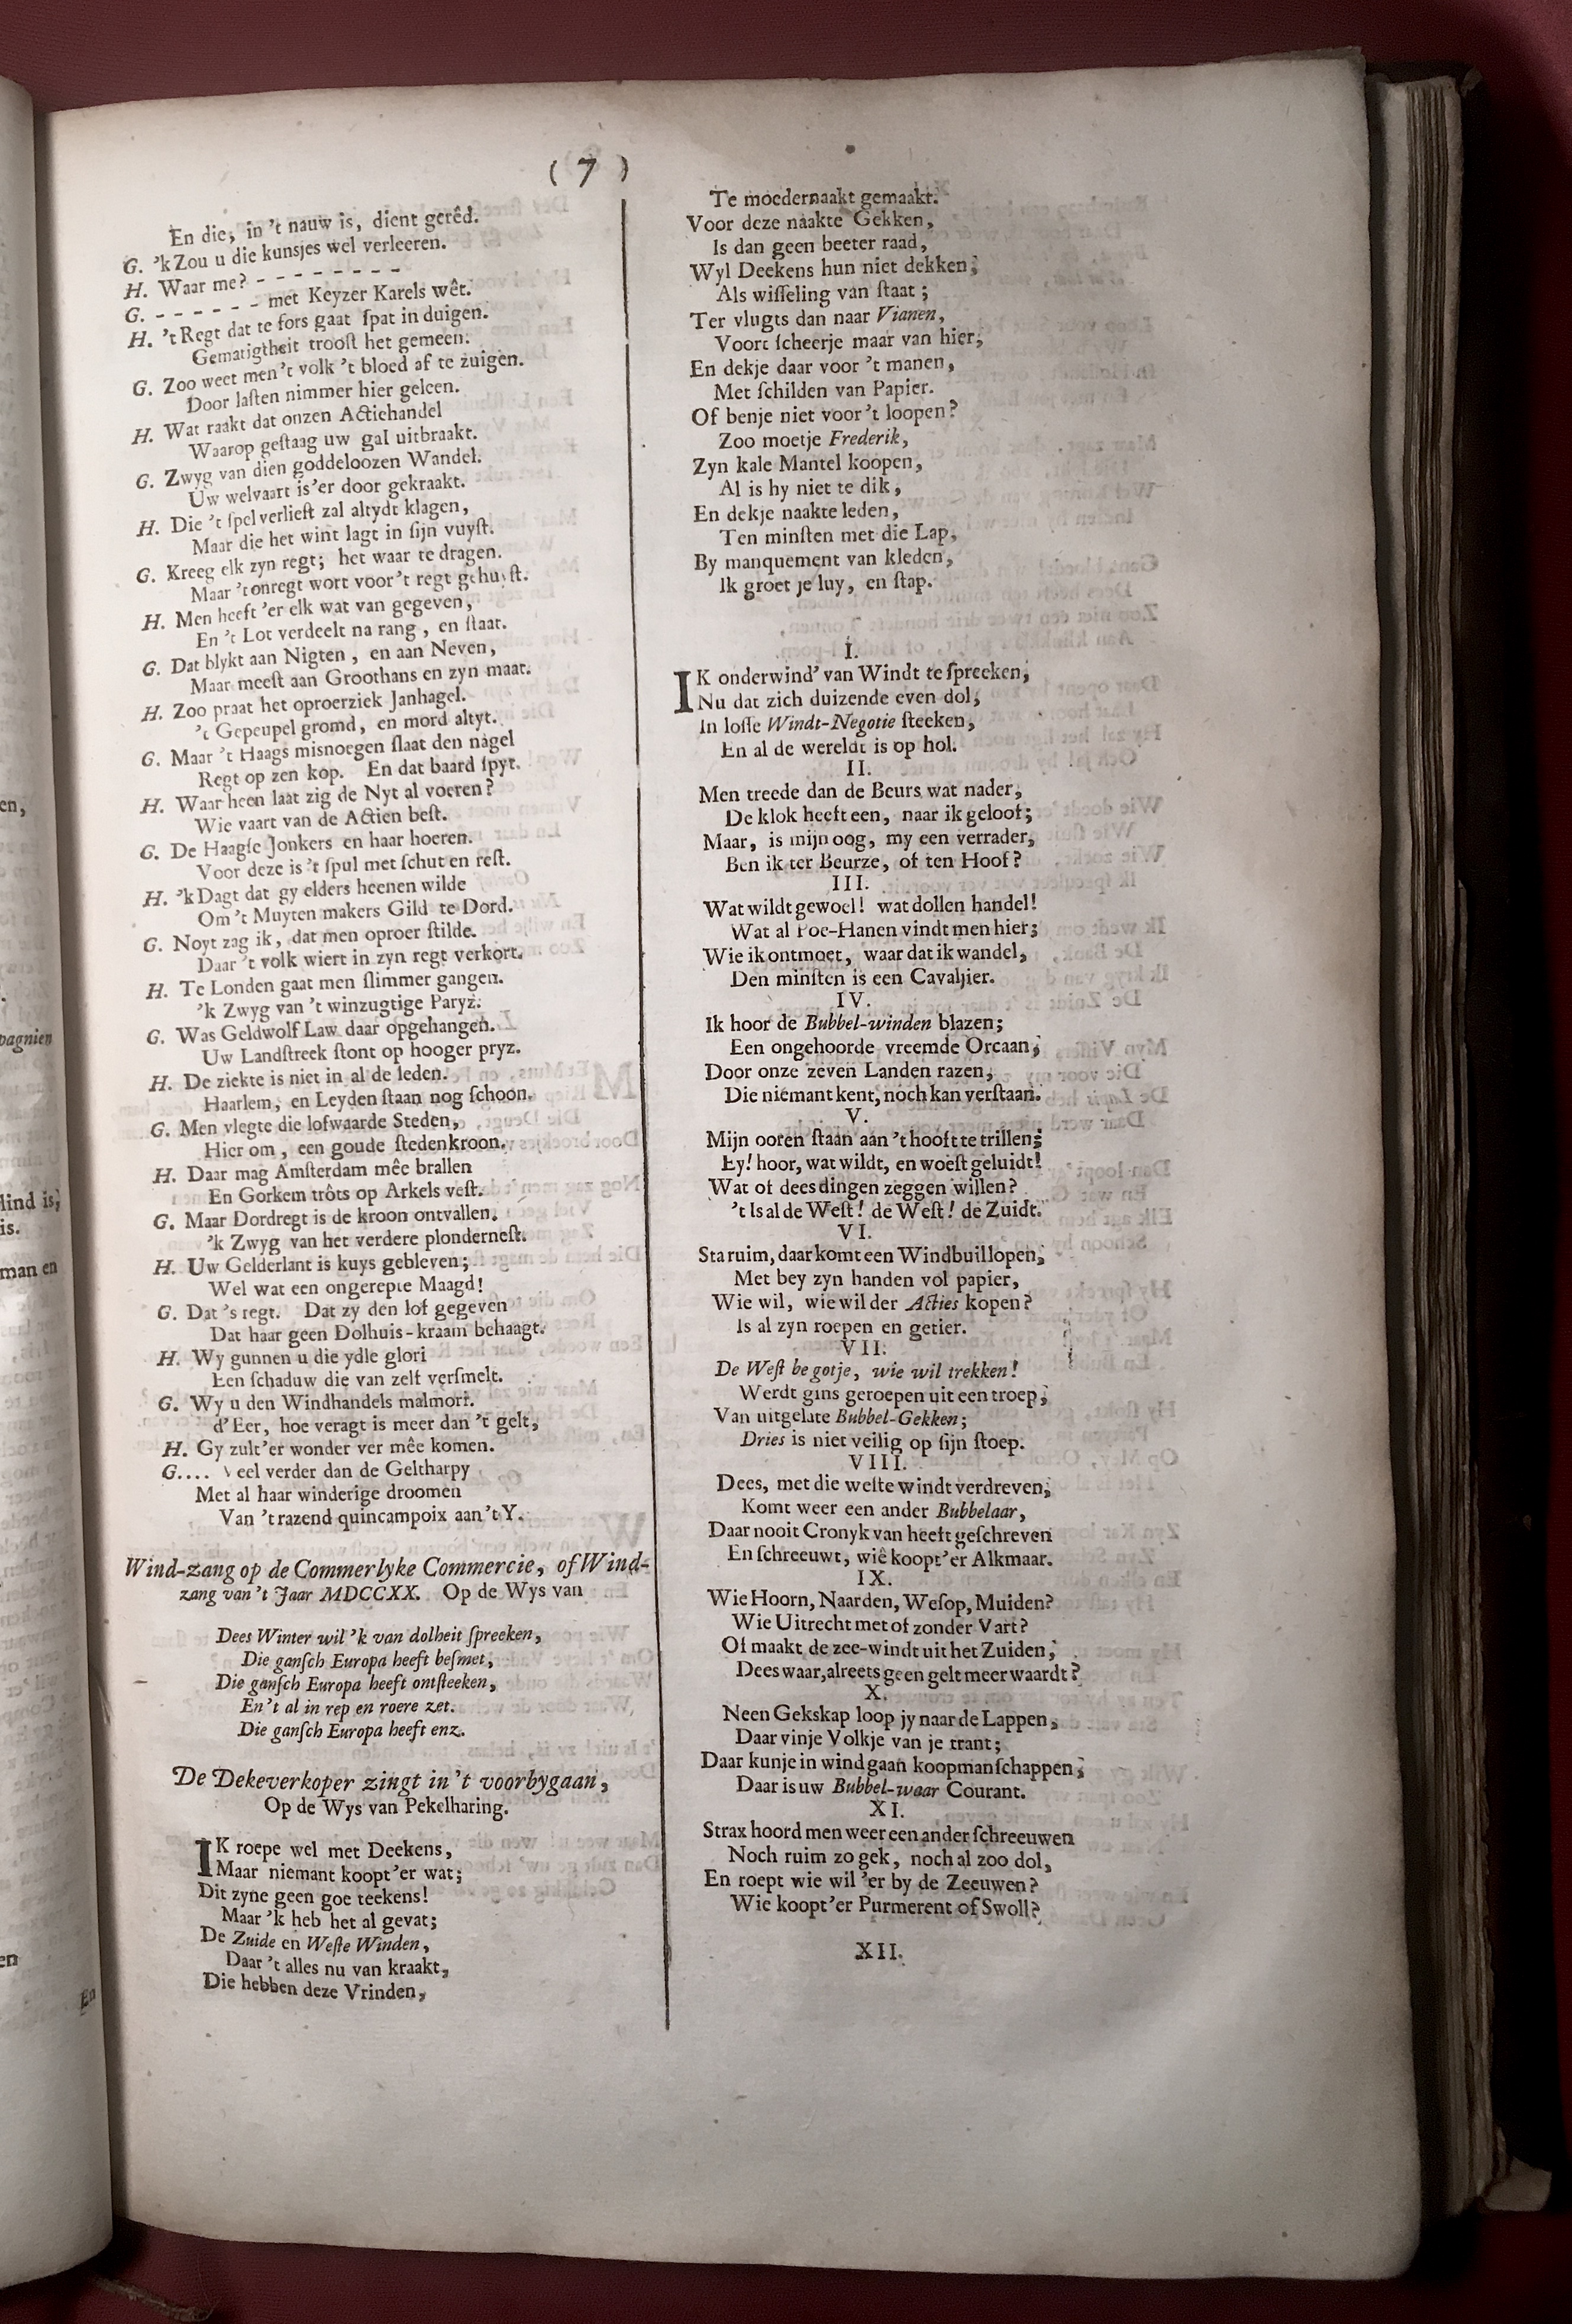 ( 7 )
En die, in 't nauw is, dient gerêd.
G. 'k Zou u die kunsjes wel verleeren.
H. Waar me? - - - - - - - -
G. - - - - - - met Keyzer Karels wêt.
H. 't Regt dat te fors gaat ſpat in duigen.
Gematigtheit trooſt het gemeen.
G. Zoo weet men 't volk 't bloed af te zuigen.
Door laſten nimmer hier geleen.
H. Wat raakt dat onzen Actiehandel
Waarop geſtaag uw gal uitbraakt.
G. Zwyg van dien goddeloozen Wandel.
Uw welvaart is 'er door gekraakt.
H. Die 't ſpel verlieſt zal altydt klagen,
Maar die het wint lagt in ſijn vuyſt.
G. Kreeg elk zyn regt; het waar te dragen.
Maar 't onregt wort voor 't regt gehuyſt.
H. Men heeft 'er elk wat van gegeven,
En 't Lot verdeelt na rang, en ſtaat.
G. Dat blykt aan Nigten, en aan Neven,
Maar meeſt aan Groothans en zyn maat.
H. Zoo praat het oproerziek Janhagel.
't Gepeupel gromd, en mord altyt.
G. Maar 't Haags misnoegen ſlaat den nagel
Regt op zen kop. En dat baard ſpyt.
H. Waar heen laat zig de Nyt al voeren?
Wie vaart van de Actien beſt.
G. De Haagſe Jonkers en haar hoeren.
Voor deze is 't ſpul met ſchut en reſt.
H. 'k Dagt dat gy elders heenen wilde
Om 't Muyten makers Gild te Dord.
G. Noyt zag ik, dat men oproer ſtilde.
Daar 't volk wiert in zyn regt verkort.
H. Te Londen gaat men ſlimmer gangen.
'k Zwyg van 't winzugtige Paryz.
G. Was Geldwolf Law daar opgehangen.
Uw Landſtreek ſtont op hooger pryz.
H. De ziekte is niet in al de leden.
Haarlem, en Leyden ſtaan nog ſchoon.
G. Men vlegte die lofwaarde Steden,
Hier om, een goude ſtedenkroon.
H. Daar mag Amſterdam mêe brallen
En Gorkem trôts op Arkels veſt.
G. Maar Dordregt is de kroon ontvallen.
'k Zwyg van het verdere plonderneſt.
H. Uw Gelderlant is kuys gebleven;
Wel wat een ongerepte Maagd!
G. Dat 's regt. Dat zy den lof gegeven
Dat haar geen Dolhuis-kraam behaagt.
H. Wy gunnen u die ydle glori
Een ſchaduw die van zelf verſmelt.
G. Wy u den Windhandels malmori.
d'Eer, hoe veragt is meer dan 't gelt,
H. Gy zult 'er wonder ver mêe komen.
G.... Veel verder dan de Geltharpy
Met al haar winderige droomen
Van 't razend quincampoix aan 't Y.
Wind-zang op de Commerlyke Commercie, of Wind-
zang van 't Jaar MDCCXX. Op de Wys van
Dees Winter wil 'k van dolheit ſpreeken,
Die ganſch Europa heeft beſmet,
Die ganſch Europa heeft ontſteeken,
En 't al in rep en roere zet.
Die ganſch Europa heeft enz.
De Dekeverkoper zingt in 't voorbygaan,
Op de Wys van Pekelharing.
IK roepe wel met Deekens,
Maar niemant koopt 'er wat;
Dit zyne geen goe teekens!
Maar 'k heb het al gevat;
De Zuide en Weſte Winden,
Daar 't alles nu van kraakt,
Die hebben deze Vrinden,
Te moedernaakt gemaakt.
Voor deze naakte Gekken,
Is dan geen beeter raad,
Wyl Deekens hun niet dekken;
Als wiſſeling van ſtaat;
Ter vlugts dan naar Vianen,
Voort ſcheerje maar van hier;
En dekje daar voor 't manen,
Met ſchilden van Papier.
Of benje niet voor 't loopen?
Zoo moetje Frederik,
Zyn kale Mantel koopen,
Al is hy niet te dik,
En dekje naakte leden,
Ten minſten met die Lap,
By manquement van kleden,
Ik groet je luy, en ſtap.
I.
IK onderwind' van Windt te ſpreeken,
Nu dat zich duizende even dol,
In loſſe Windt-Negotie ſteeken,
En al de wereldt is op hol.
II.
Men treede dan de Beurs wat nader,
De klok heeft een, naar ik geloof;
Maar, is mijn oog, my een verrader,
Ben ik ter Beurze, of ten Hoof?
III.
Wat wildt gewoel! wat dollen handel!
Wat al Poe-Hanen vindt men hier;
Wie ik ontmoet, waar dat ik wandel,
Den minſten is een Cavaljier.
IV.
Ik hoor de Bubbel-winden blazen;
Een ongehoorde vreemde Orcaan,
Door onze zeven Landen razen,
Die niemant kent, noch kan verſtaan.
V.
Mijn ooren ſtaan aan 't hooft te trillen;
Ey! hoor, wat wildt, en woeſt geluidt!
Wat of dees dingen zeggen willen?
't Is al de Weſt! de Weſt! de Zuidt.
VI.
Sta ruim, daar komt een Windbuil lopen,
Met bey zyn handen vol papier,
Wie wil, wie wil der Acties kopen?
Is al zyn roepen en getier.
VII.
De Weſt begotje, wie wil trekken!
Werdt gins geroepen uit een troep,
Van uitgelate Bubbel-Gekken;
Dries is niet veilig op ſijn ſtoep.
VIII.
Dees, met die weſte windt verdreven,
Komt weer een ander Bubbelaar,
Daar nooit Cronyk van heeft geſchreven
En ſchreeuwt, wiê koopt 'er Alkmaar.
IX.
Wie Hoorn, Naarden, Weſop, Muiden?
Wie Uitrecht met of zonder Vart?
Of maakt de zee-windt uit het Zuiden,
Dees waar, alreets geen gelt meer waardt?
X.
Neen Gekskap loop jy naar de Lappen,
Daar vinje Volkje van je trant;
Daar kunje in wind gaan koopmanſchappen,
Daar is uw Bubbel-waar Courant.
XI.
Strax hoord men weer een ander ſchreeuwen
Noch ruim zo gek, noch al zoo dol,
En roept wie wil 'er by de Zeeuwen?
Wie koopt 'er Purmerent of Swoll?
XII.